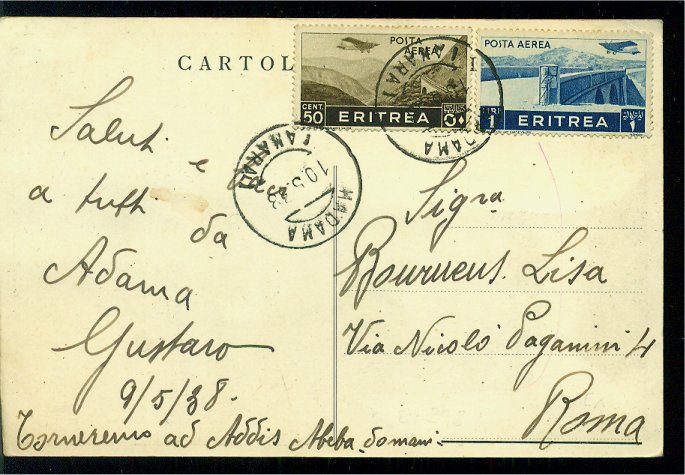 CARTOL
POSTA
AEREA
CENT.
50
ERITREA
POSTA AEREA
LIRE
1
ERITREA
(AMARA)
ADAMA
HADAMA
(AMARA)
10.5.
Saluti e
a tutti da
Adama
Gustavo
9/5/38.
Torneremo ad Addis Abeba domani.
Sigra
Lisa
Via Nicolò Paganini 4
Roma